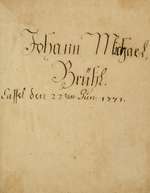 Johann Michael
Brühl.
Cassel den 22ten Jun. 1771.